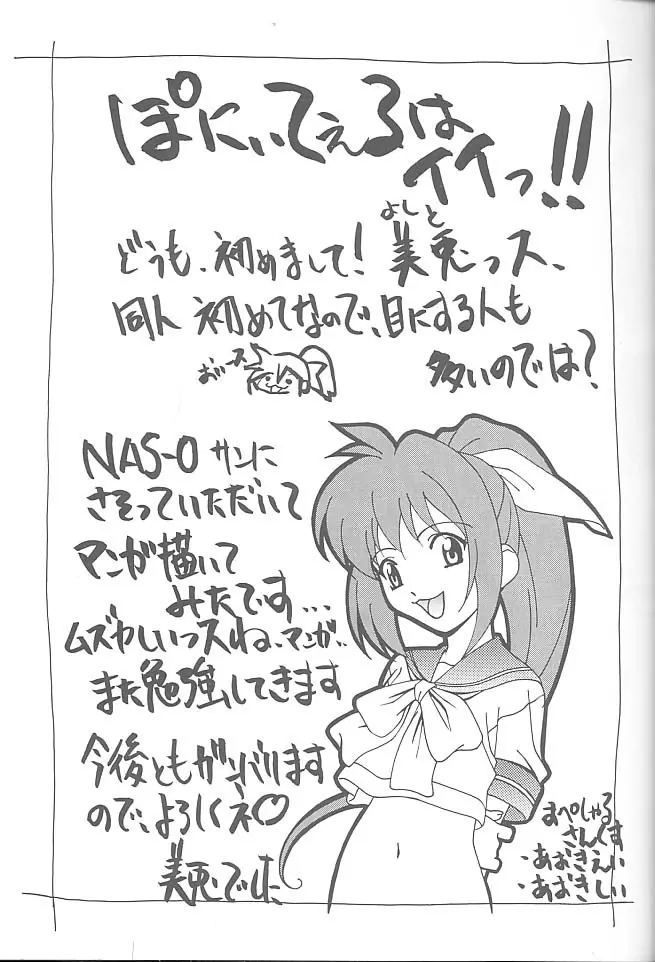 ぽにぃてぇるは
イイっ!!
よしと
どうも、初めまして!美兎っス、
同人 初めてなので、目にする人も
多いのでは?
おぃース
NAS-O サンに
さそっていただいて
マンガ描いて
みたです...
ムズかしいっスね、マンガ..
また勉強してきます
今後ともガンバります
ので、よろしくネ♡
美兎でした
すぺしゃる
さんくす
・あおきえい
・あおきしい